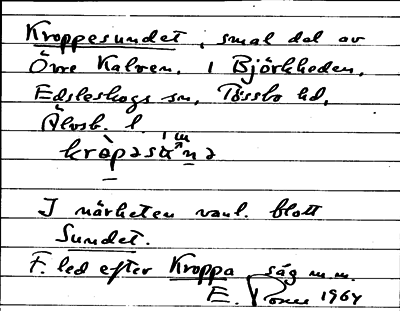 Kroppesundet, smal del av
Övre Kalven, i Björkheden,
Edsleskogs sn, Tössbo hd,
Älvsb. l.
I närheten vanl. blott
Sundet.
F. led efter Kroppa säg m.m.
E. 1964